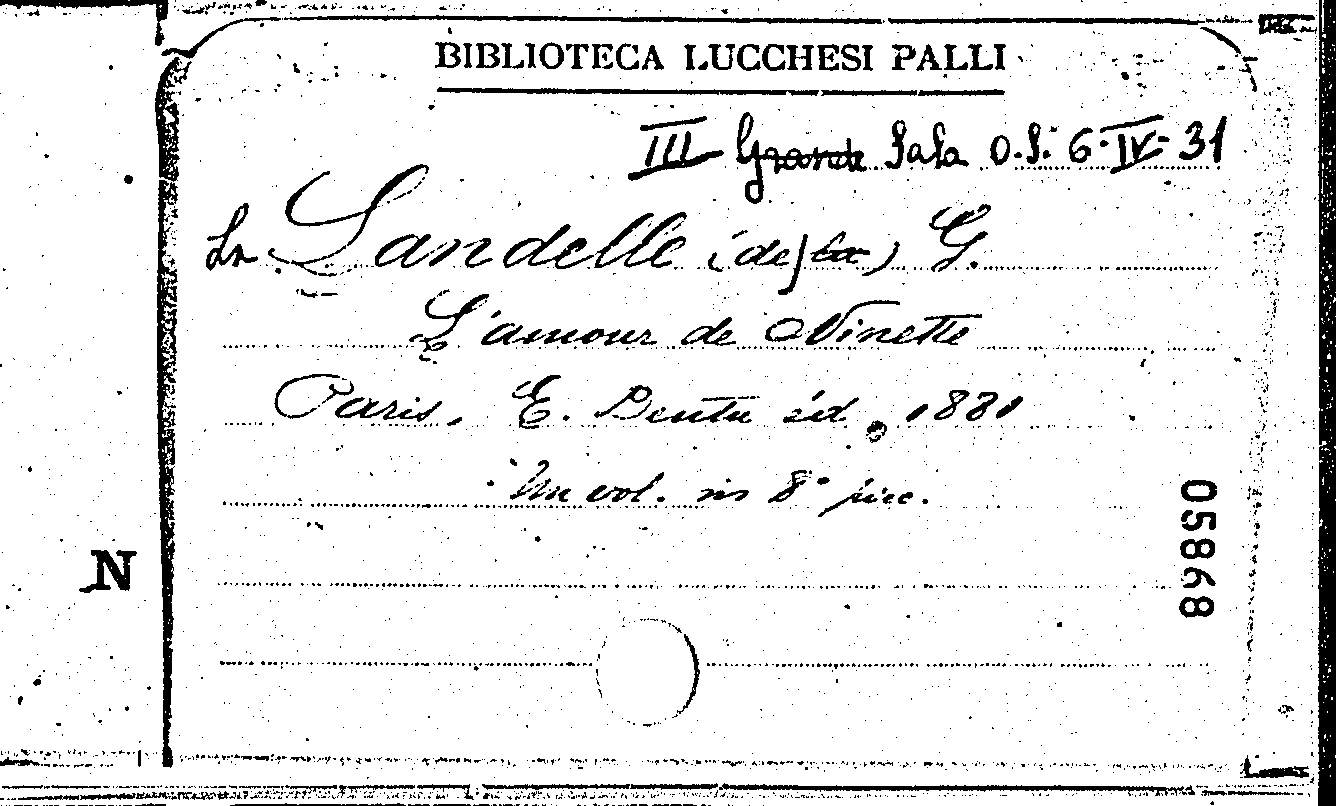 BIBLIOTECA LUCCHESI PALLI
III Grande Sala O.S. 6-IV-31
La Landelle (de) la) G.
L'amour de Ninette
Paris, E. Dentu éd, 1881
Un vol. in 8° picc.
05868
N